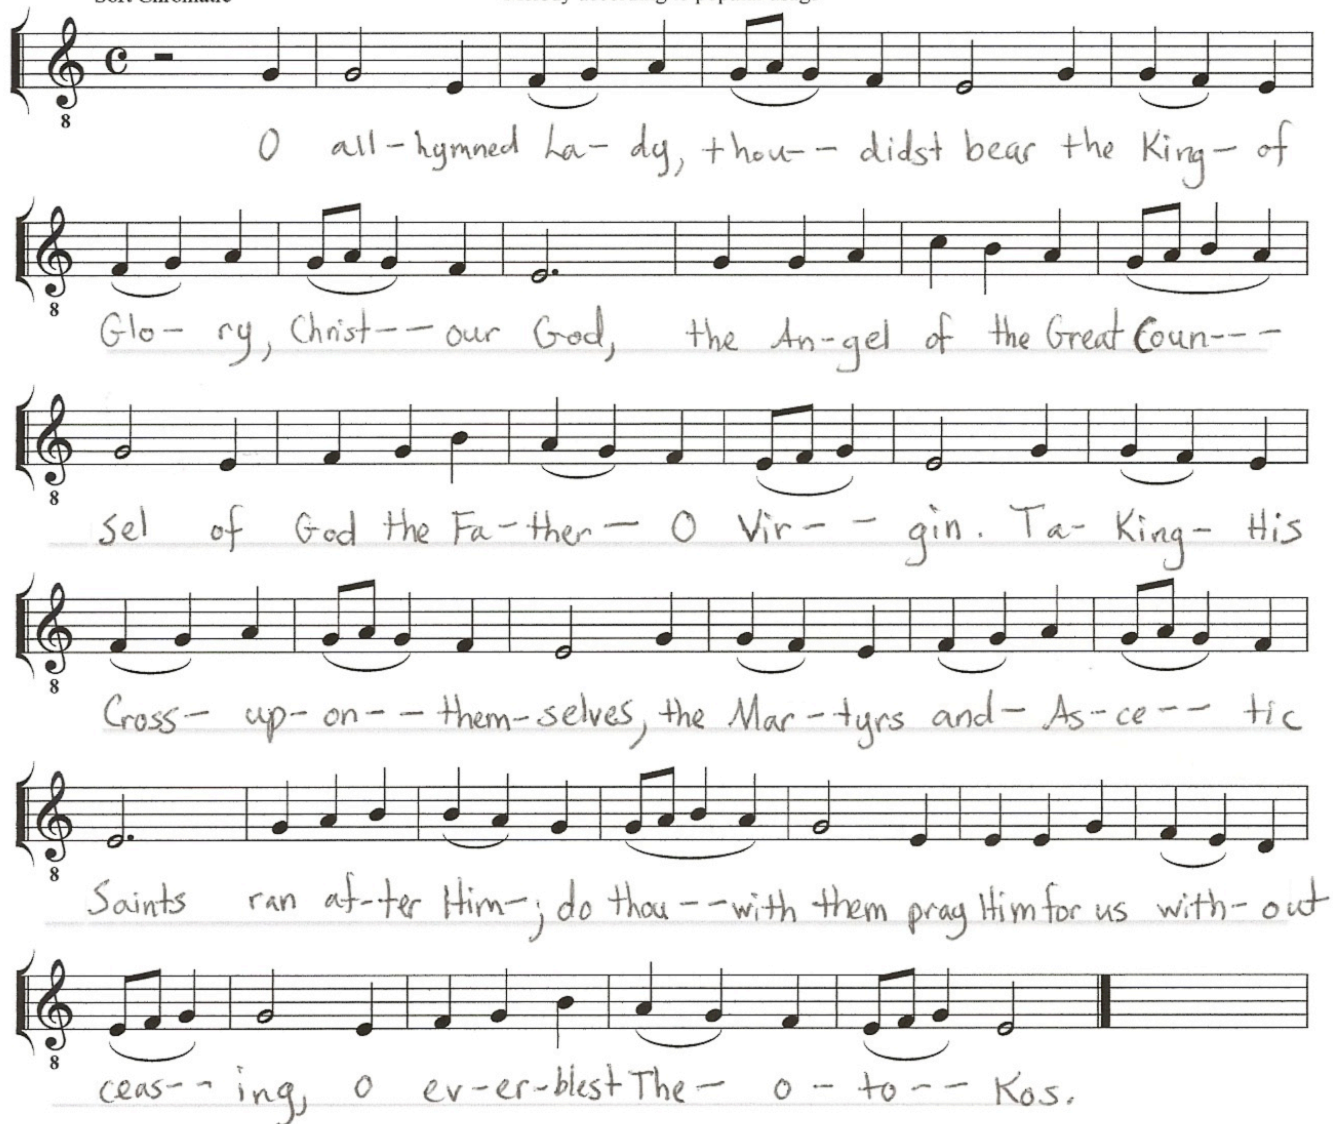 Soft Chromatic
8
O all-hymned La- dy, thou-- didst bear the King- of
8
Glo- ry, Christ-- our God, the An-gel of the Great Coun---
8
sel of God the Fa-ther- O Vir-- gin. Ta- King- His
8
Cross- up- on-- them-selves, the Mar-tyrs and- As-ce-- tic
8
Saints ran af-ter Him-; do thou--with them pray Him for us with-out
8
ceas-- ing, O ev-er-blest The- o-to-- Kos.